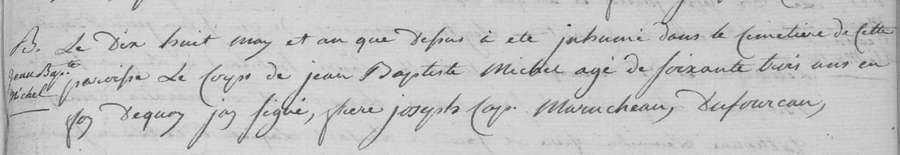 B. Le Dix huit may et an que Dessus à eté inhumé dans le Cimetiere de Cette
Jean Bap.te paroisse Le Corps de jean Baptiste Michel agé de soixante trois ans en
Michel foy Dequoy jay signé, frere joseph Cap. Marucheau, Dufourcau,